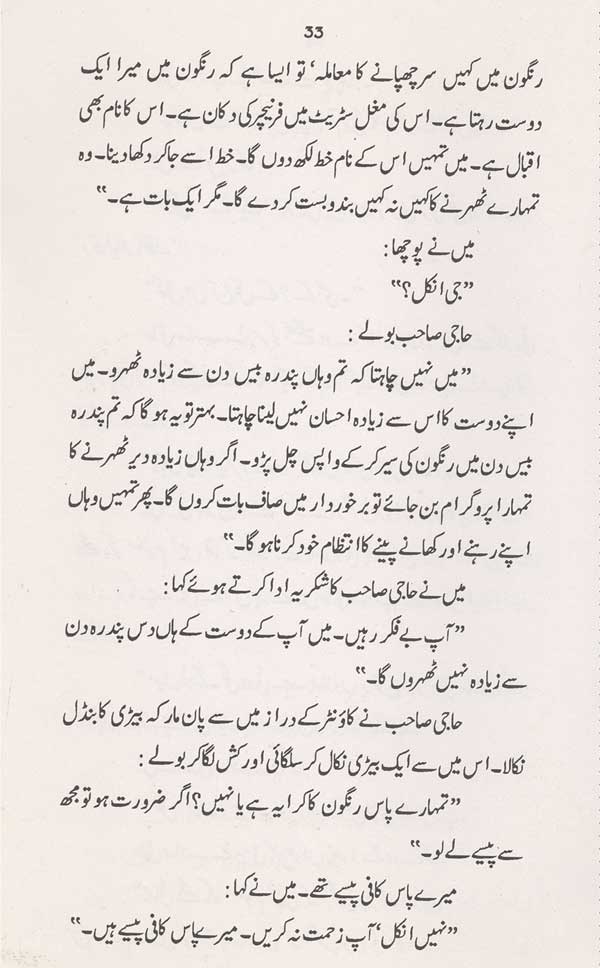 33
رنگون میں کہیں سر چھپانے کا معاملہ‘ تو ایسا ہے کہ رنگون میں میرا ایک
دوست رہتا ہے۔ اس کی مغل سٹریٹ میں فرنیچر کی دکان ہے۔ اس کا نام بھی
اقبال ہے۔ میں تمہیں اس کے نام خط لکھ دوں گا۔ خط اسے جا کر دکھا دینا۔ وہ
تمہارے ٹھہرنے کا کہیں نہ کہیں بندوبست کر دے گا۔ مگر ایک بات ہے۔“
میں نے پوچھا:
”جی انکل؟“
حاجی صاحب بولے:
”میں نہیں چاہتا کہ تم وہاں پندرہ بیس دن سے زیادہ ٹھہرو۔ میں
اپنے دوست کا اس سے زیادہ احسان نہیں لینا چاہتا۔ بہتر تو یہ ہو گا کہ تم پندرہ
بیس دن میں رنگون کی سیر کر کے واپس چل پڑو۔ اگر وہاں زیادہ دیر ٹھہرنے کا
تمہارا پروگرام بن جائے تو برخوردار میں صاف بات کروں گا۔ پھر تمہیں وہاں
اپنے رہنے اور کھانے پینے کا انتظام خود کرنا ہو گا۔“
میں نے حاجی صاحب کا شکریہ ادا کرتے ہوئے کہا:
”آپ بے فکر رہیں۔ میں آپ کے دوست کے ہاں دس پندرہ دن
سے زیادہ نہیں ٹھہروں گا۔“
حاجی صاحب نے کاؤنٹر کے دراز میں سے پان مارکہ بیڑی کا بنڈل
نکالا۔ اس میں سے ایک بیڑی نکال کر سلگائی اور کش لگا کر بولے:
”تمہارے پاس رنگون کا کرایہ ہے یا نہیں؟ اگر ضرورت ہو تو مجھ
سے پیسے لے لو۔“
میرے پاس کافی پیسے تھے۔ میں نے کہا:
”نہیں انکل‘ آپ زحمت نہ کریں۔ میرے پاس کافی پیسے ہیں۔“